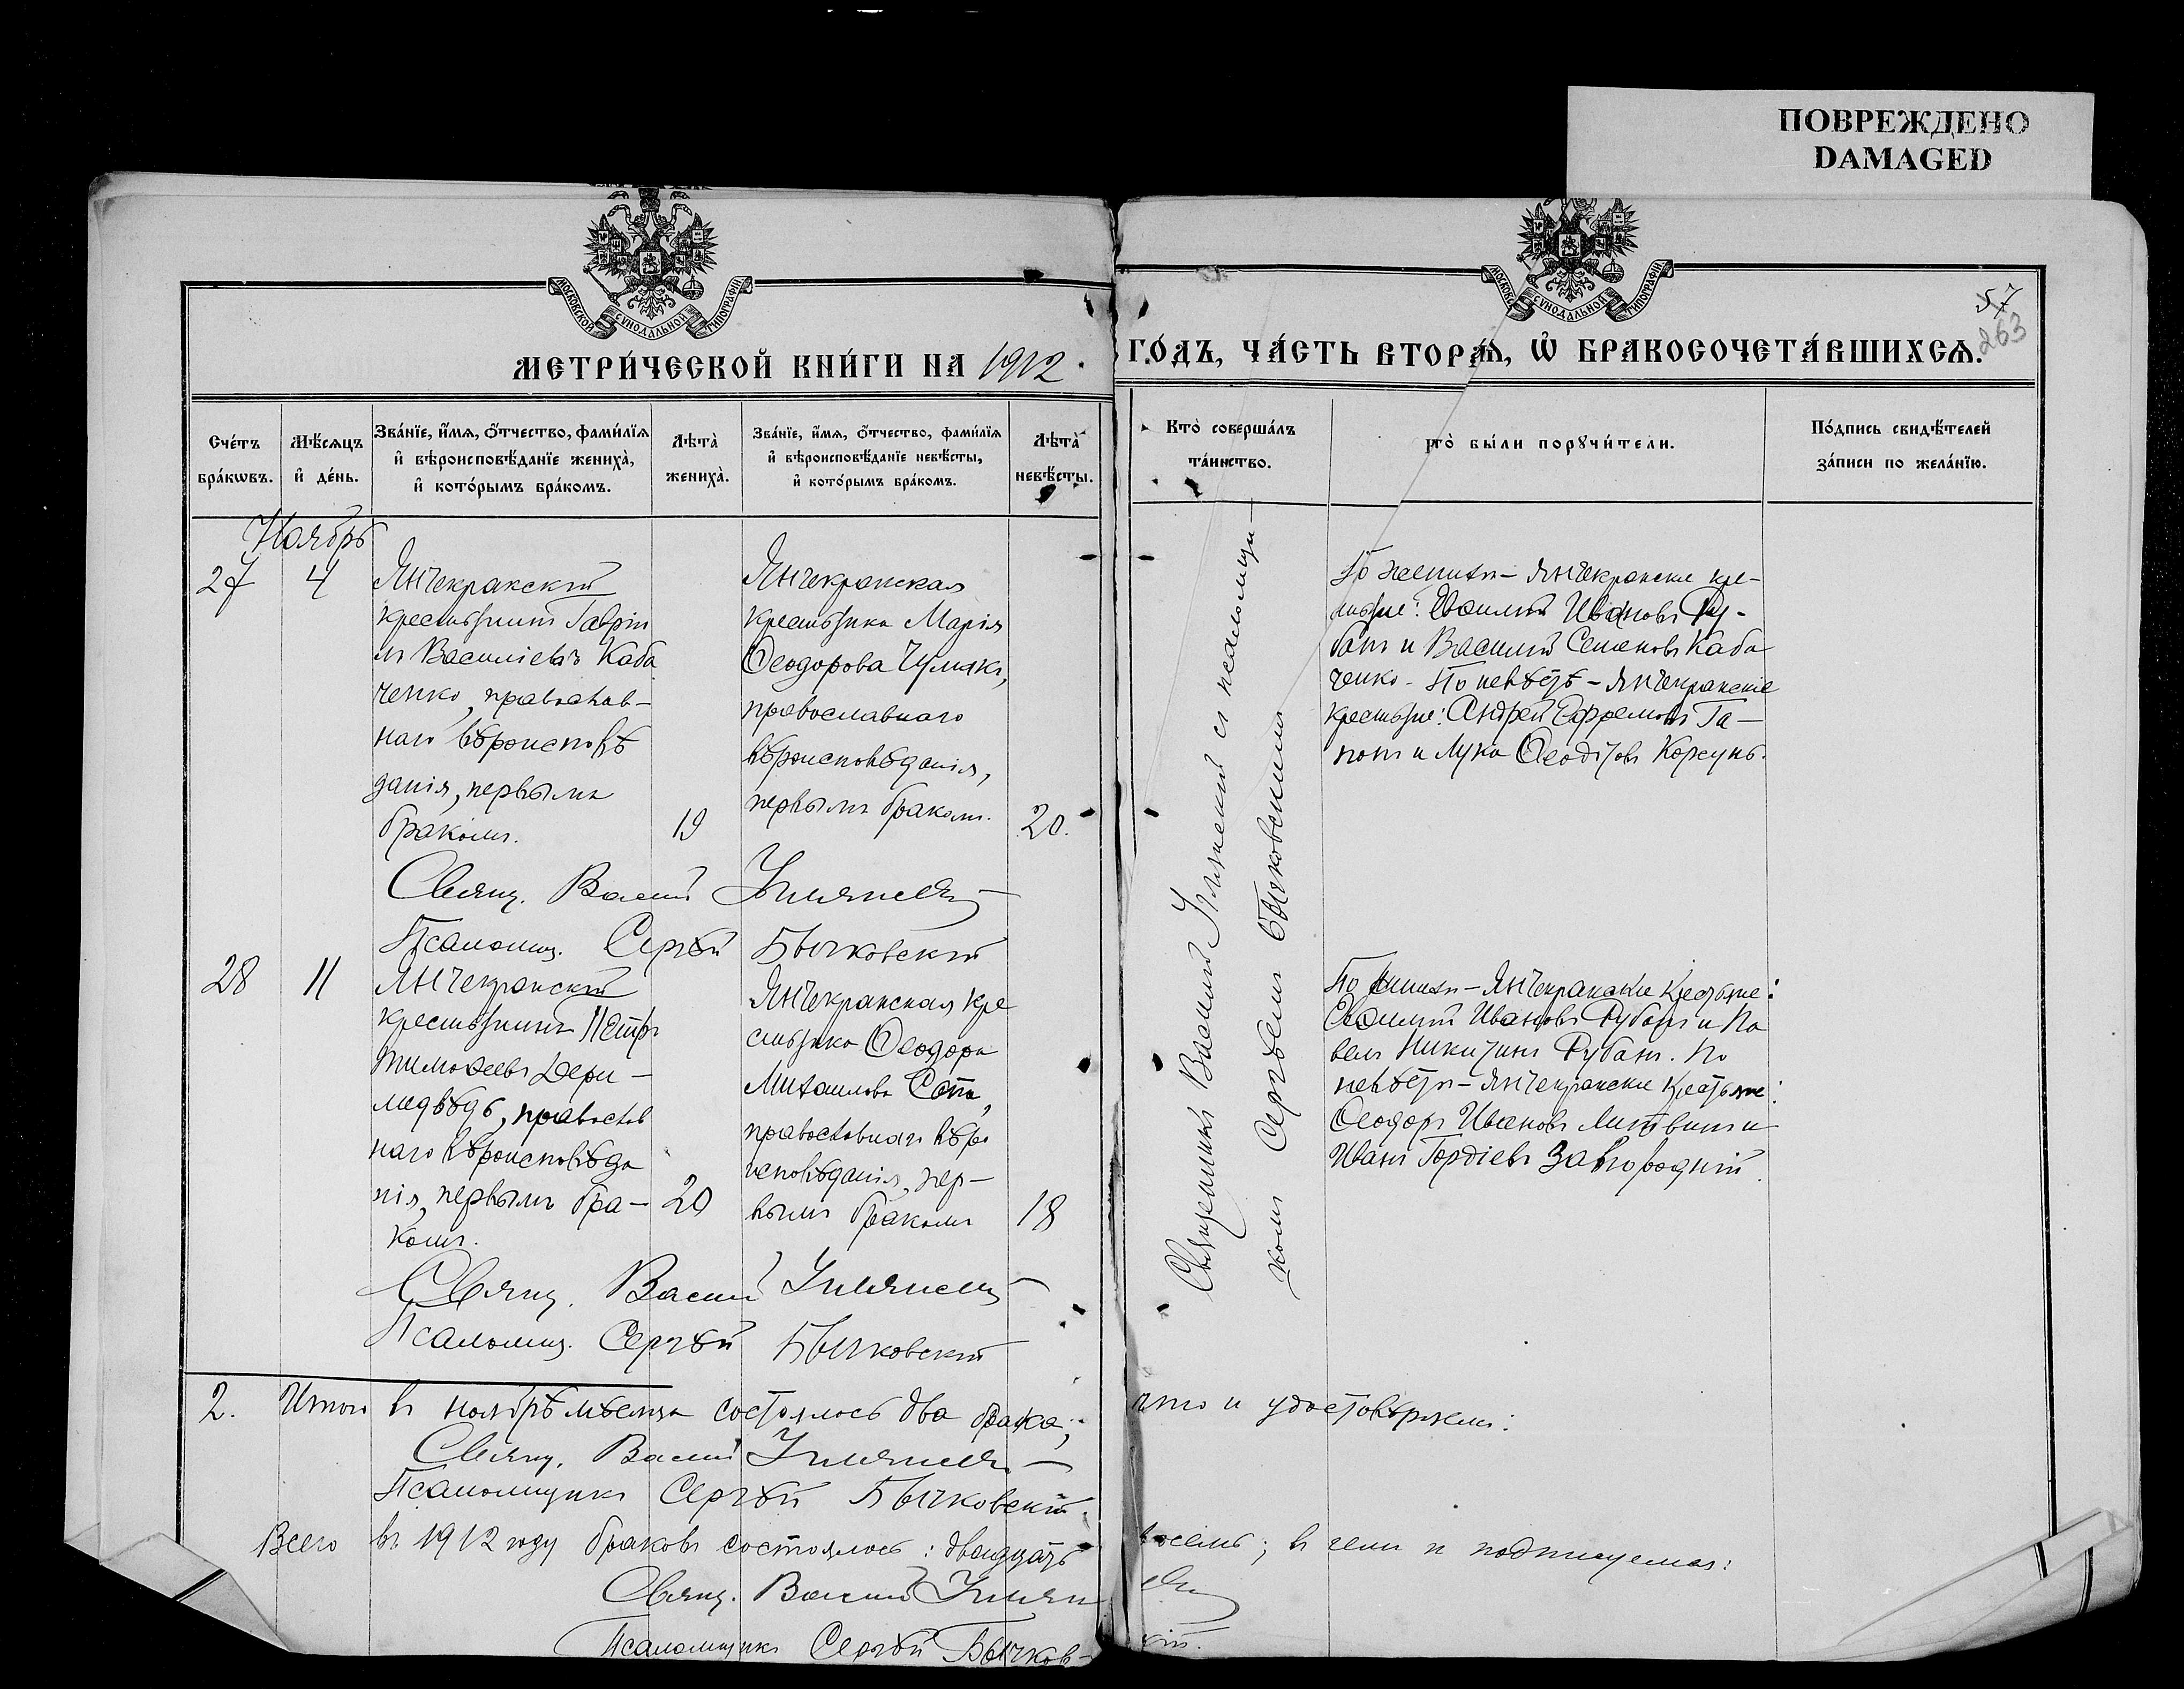 ПОВРЕЖДЕНО
DAMAGED
МОСКОВСКОЙ СѴНОДАЛЬНОЙ ТИПОГРАФІИ
МОСКОВСКОЙ СѴНОДАЛЬНОЙ ТИПОГРАФІИ
57
263
МЕТРИ́ЧЕСКОЙ КНИ́ГИ НА 1912
ГО́ДЪ, ЧА́СТЬ ВТОРА́Ѧ, Ѡ҆ БРАКОСОЧЕТА́ВШИХСѦ.
Сче́тъ бра́кѡвъ.
Мѣ́сяцъ и҆ де́нь.
Зва́нїе, и҆́мя, ѻ҆́тчество, фами́лїя и҆ вѣроисповѣ́данїе жениха̀, и҆ кото́рымъ бра́комъ.
Лѣта̀ жениха̀.
Зва́нїе, и҆́мя, ѻ҆́тчество, фами́лїя и҆ вѣроисповѣ́данїе невѣ́сты, и҆ кото́рымъ бра́комъ.
Лѣта̀ невѣ́сты.
Кто̀ соверша́лъ та́инство.
кто̀ бы́ли порꙋчи́тели.
По́дпись свидѣ́телей за́писи по жела́нїю.
Ноябрь
27
4
Янчекракскій
крестьянинъ Гаврі
илъ Василіевъ Каба
ченко, православ-
наго вѣроисповѣ
данія, первымъ
бракомъ.
19
Янчекракская
крестьянка Марія
Ѳеодорова Чумакъ,
православнаго
вѣроисповѣданія,
первымъ бракомъ.
20.
Священ. Василій
Псаломщ. Сергѣй Бычковскій
Священникъ Василій съ псаломщи-
комъ Сергѣемъ Бычковскимъ
По женихѣ - Янчекракскіе кре-
стьяне: Ивановъ Ру-
банъ и Василій Семеновъ Каба
ченко. По невѣстѣ - Янчекракскіе
крестьяне: Андрей Ефремовъ Га-
понъ и Лука Ѳеодотовъ Корсунь.
28
11
Янчекракскій
крестьянинъ Петръ
Тимоѳеевъ Дери-
медвѣдь, православ
наго вѣроисповѣда
нія, первымъ бра-
комъ.
20
Янчекракская кре
стьянка Ѳеодора
Михаилова
православнаго вѣро
исповѣданія, пер-
вымъ бракомъ
18
Священ. Василій
Псаломщ. Сергѣй Бычковскій
По женихѣ - Янчекракскіе крестьяне:
Ивановъ Рубанъ и Па
велъ Никитинъ Рубанъ. По
невѣстѣ - Янчекракскіе крестьяне:
Ѳеодоръ Ивановъ Литвинъ и
Иванъ Гордіевъ Завгородній.
2. Итого въ ноябрѣ мѣсяцѣ состоялось два брака, что и удостовѣряемъ:
Священ. Василій
Псаломщикъ Сергѣй Бычковскій.
Всего въ 1912 году браковъ состоялось: двадцать восемь; въ чемъ и подписуемся:
Священ. Василій
Псаломщикъ Сергѣй Бычковскій.